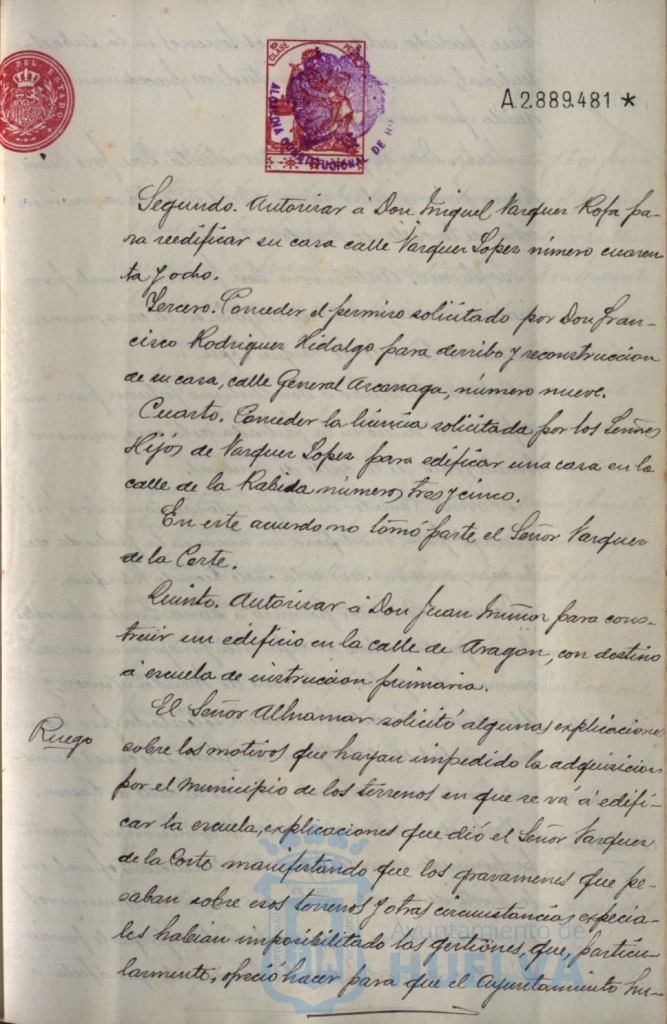 A DEL ESTADO
10ª CLASE PESETA
ALCALDIA CONSTITUCIONAL DE H
A.2.889.481 *
Segundo. Autorizar á Don Miguel Vazquez Rofa pa-
ra reedificar su casa calle Vazquez Lopez número cuaren-
ta y ocho.
Tercero. Conceder el permiso solicitado por Don Fran-
cisco Rodriguez Hidalgo para derribo y reconstruccion
de su casa, calle General Azcarraga, número nueve.
Cuarto. Conceder la licencia solicitada por los Señores
Hijos de Vazquez Lopez para edificar una casa en la
calle de la Rabida números tres y cinco.
En este acuerdo no tomó parte el Señor Vazquez
de la Corte.
Quinto. Autorizar á Don Juan Muñoz para cons-
truir un edificio en la calle de Aragon, con destino
á escuela de instruccion primaria.
Ruego
El Señor Alhnamar solicitó algunas explicaciones
sobre los motivos que hayan impedido la adquisicion
por el Municipio de los terrenos en que se vá á edifi-
car la escuela, explicaciones que dió el Señor Vazquez
de la Corte manifestando que los gravamenes que pe-
saban sobre esos terrenos y otras circunstancias especia-
les habian imposibilitado las gestiones, que, particu-
larmente, ofreció hacer para que el Ayuntamiento hu-
Ayuntamiento de
HUELVA